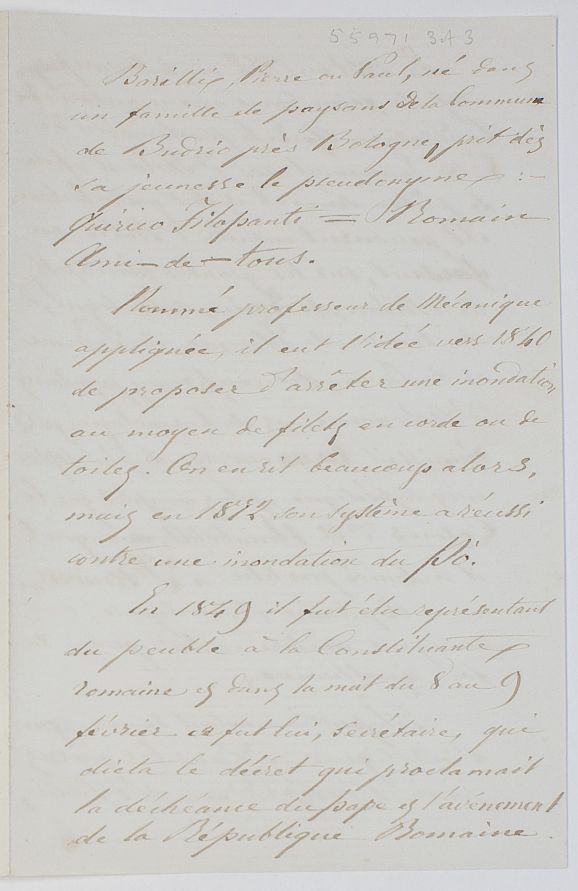 55971 3A3
Barilli, Pierre ou Paul, né dans
un famille de paysans de la Commune
de Budrio près Bologne, prit dès
sa jeunesse le pseudonyme :-
Quirico Filopanti = Romain
Ami-de-tous.
Nommé professeur de Mécanique
appliquée, il eut l'idée vers 1840
de proposer d'arrêter une inondation
au moyen de filets en corde ou de
toiles. On en rit beaucoup alors,
mais en 1872 son système a réussi
contre une inondation du Pô.
En 1849 il fut élu représentant
du peuble à la Constituante
romaine et dans la nuit du 8 au 9
février ce fut lui, secrétaire, qui
dicta le décret qui proclamait
la déchéance du pape et l'avénement
de la République Romaine.